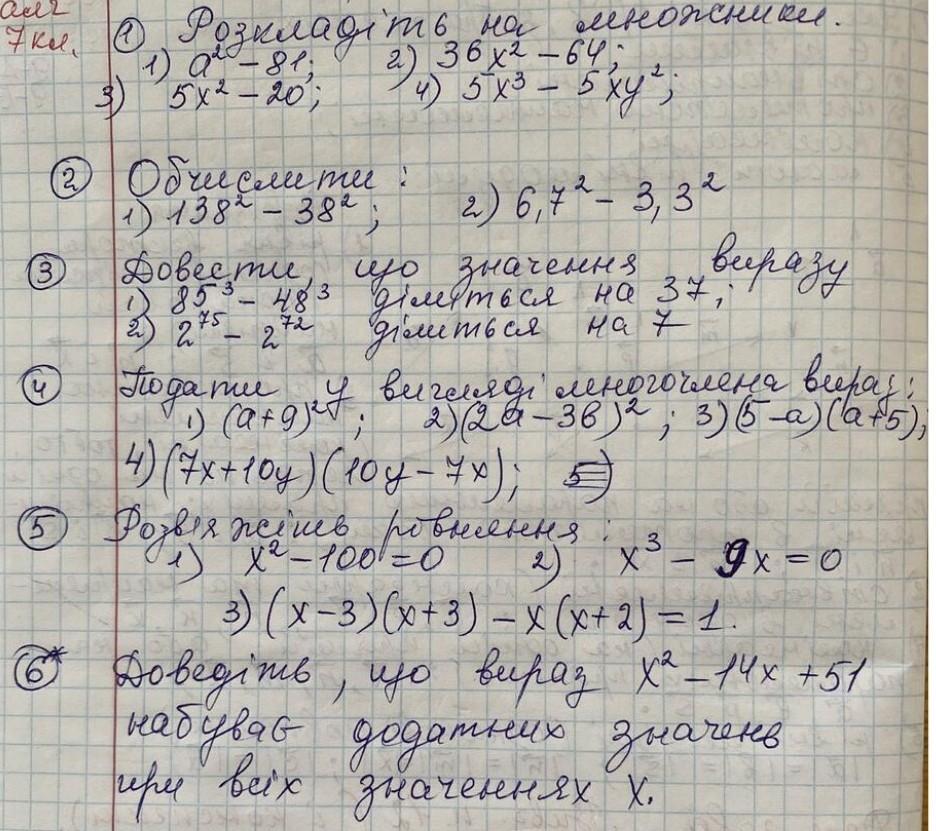 алг
7 кл.
① Розкладіть на множники.
1) a² – 81; 2) 36x² – 64;
3) 5x² – 20; 4) 5x³ – 5xy²;
② Обчислити:
1) 138² – 38²; 2) 6,7² – 3,3²
③ Довести, що значення виразу
1) 85³ – 48³ ділиться на 37;
2) 2⁷⁵ – 2⁷² ділиться на 7
④ Подати у вигляді многочлена вираз:
1) (a+9)²; 2) (2a–3b)²; 3) (5–a)(a+5);
4) (7x+10y)(10y–7x);
⑤ Розвяжіть рівняння:
1) x² – 100 = 0 2) x³ – 9x = 0
3) (x–3)(x+3) – x(x+2) = 1.
⑥* Доведіть, що вираз x² – 14x + 51
набуває додатних значень
при всіх значеннях x.